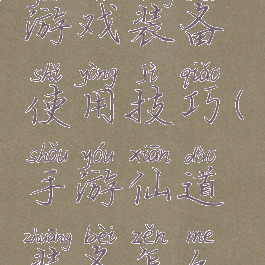 游戏装备
shǐ yòng jì qiǎo
使用技巧(
shǒu yóu xiān dào
手游仙道
zhuāng bèi zěn me
装备怎么